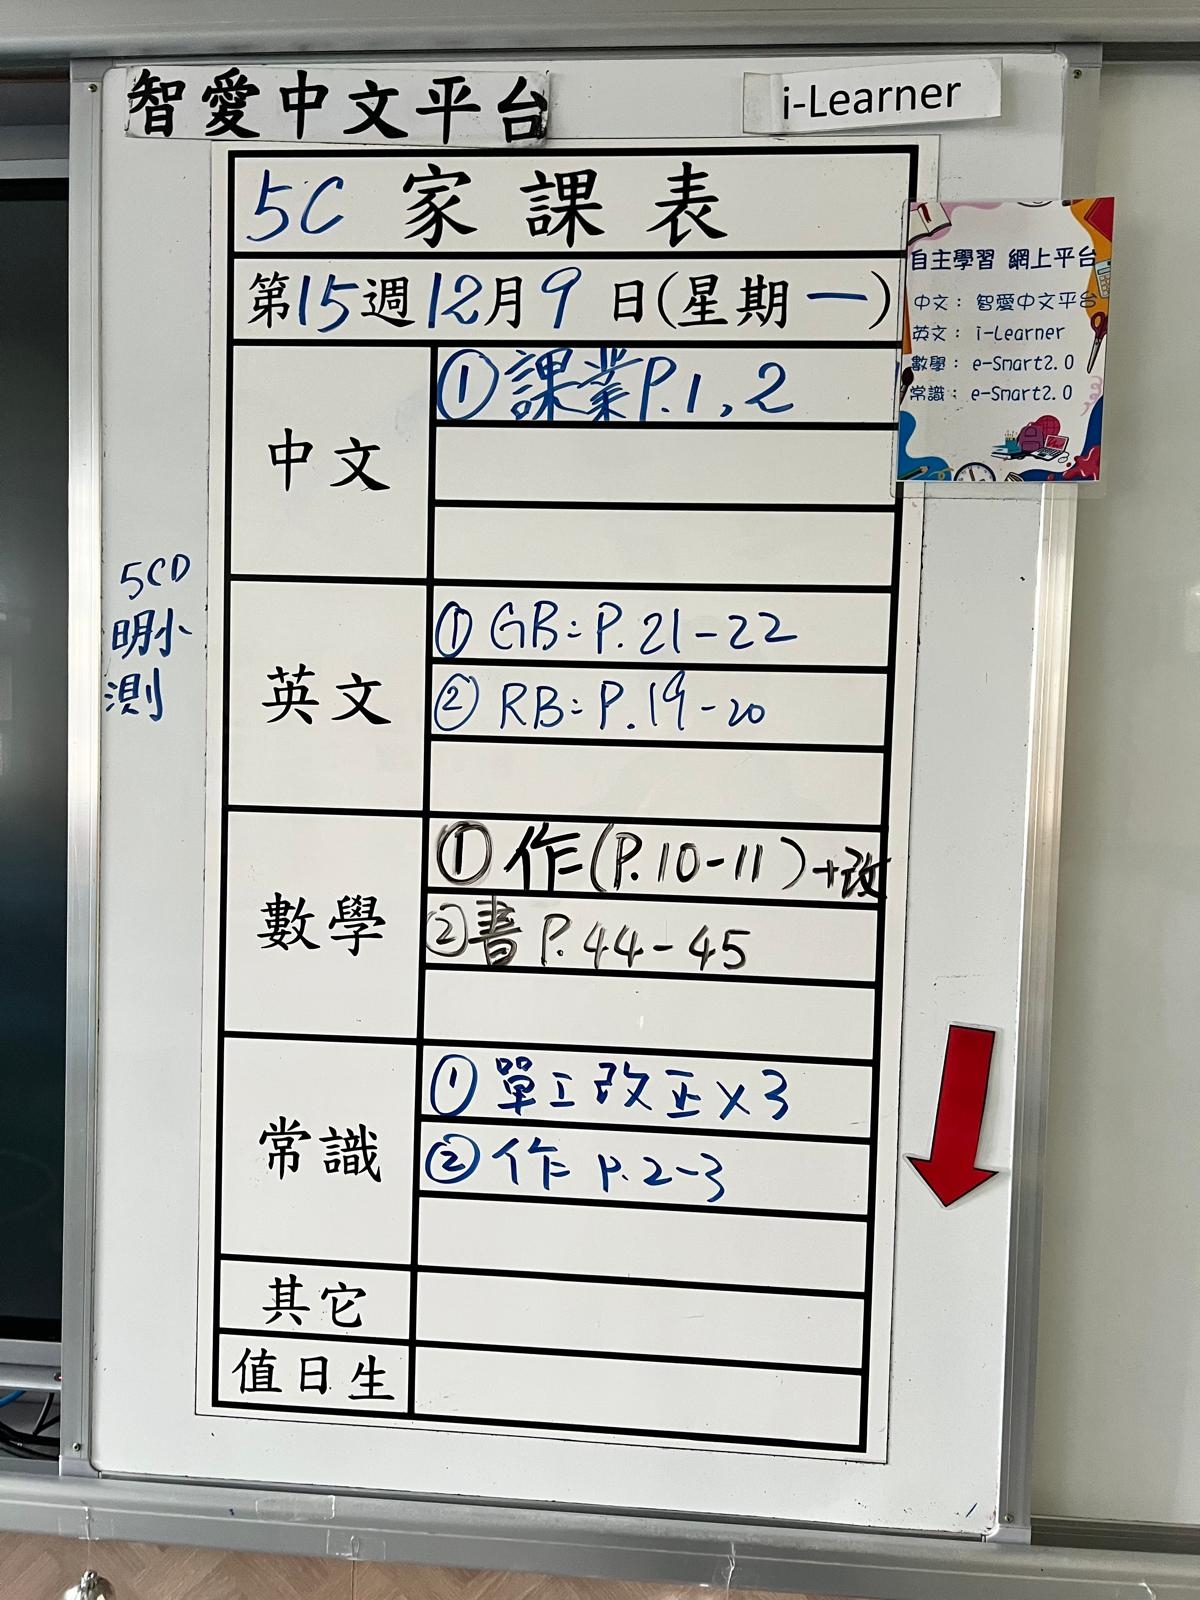 智愛中文平台
i-Learner
5C 家課表
第15週12月9日(星期一)
自主學習 網上平台
中文： 智愛中文平台
英文： i-Learner
數學： e-Smart2.0
常識： e-Smart2.0
中文
① 課業P.1,2
5CD
明小
測
英文
① GB: P.21-22
② RB: P.19-20
數學
① 作(P.10-11)+改
②書 P.44-45
常識
① 單工改正x3
② 作 P.2-3
其它
值日生